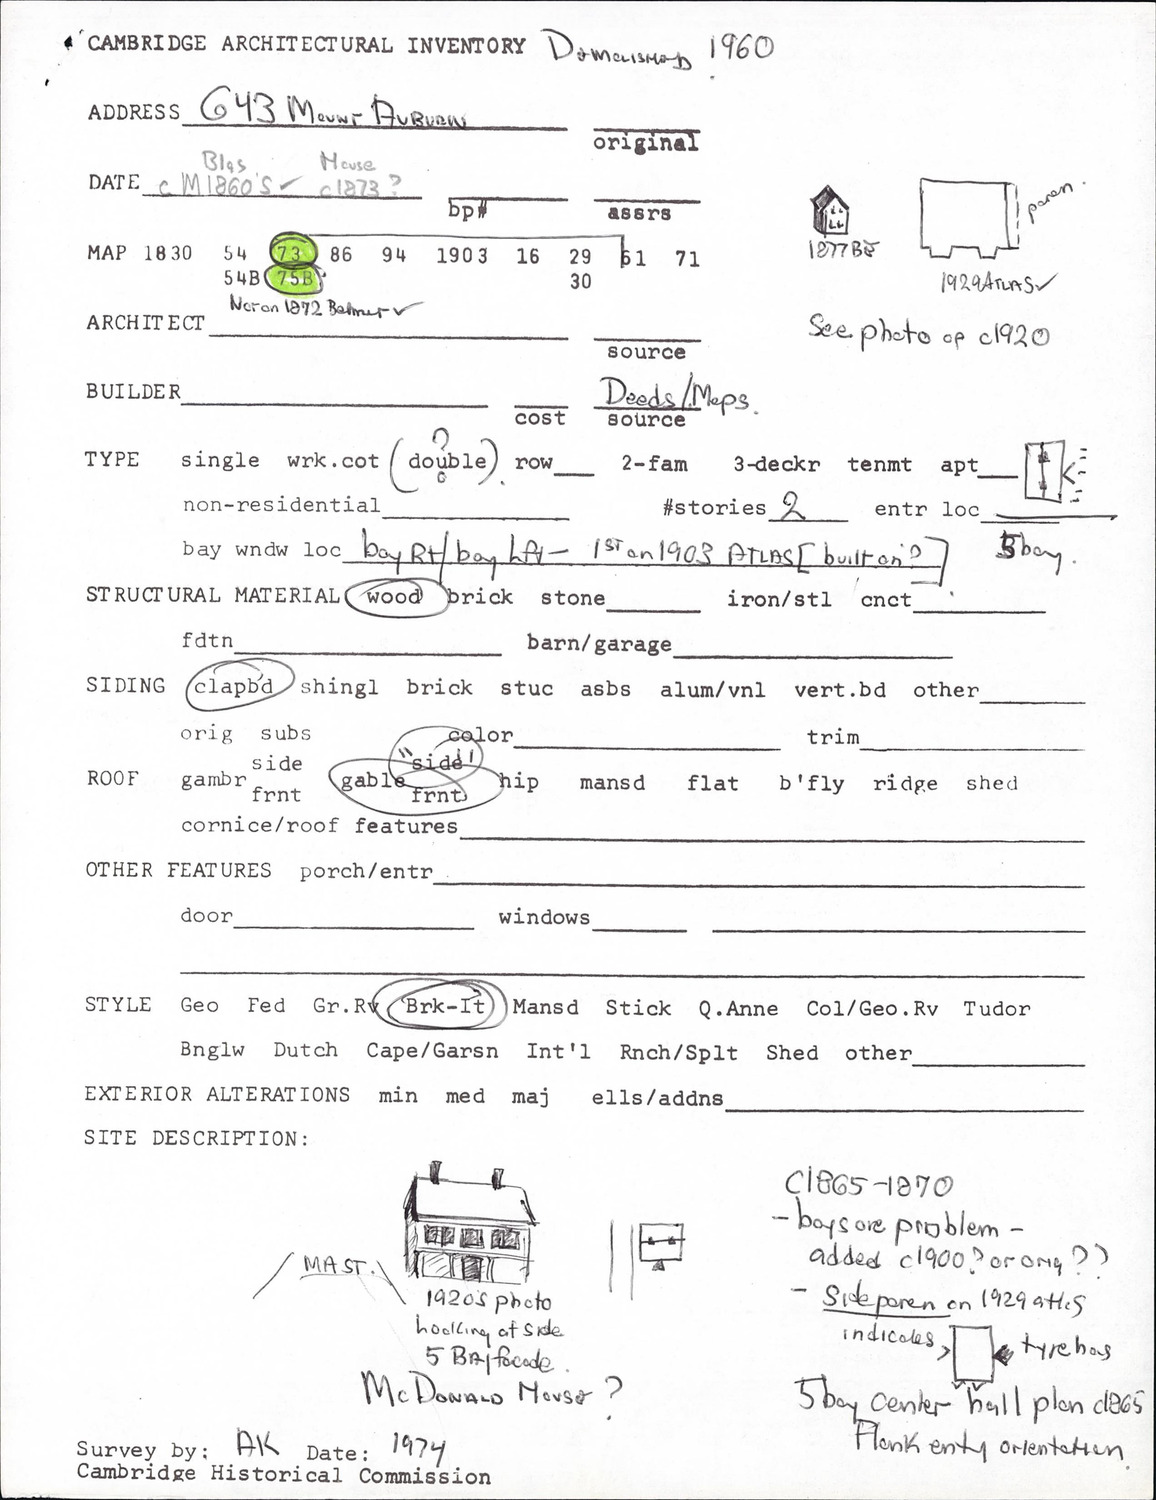 CAMBRIDGE ARCHITECTURAL INVENTORY Demolished 1960
ADDRESS 643 Mount Auburn
original
Blgs House
DATE c M1860's ✓ c1873?
bp# assrs
1877 BE
paren.
MAP 1830 54 73 86 94 1903 16 29 51 71
54B 75B 30
1929 ATLAS ✓
Not on 1872 ✓
ARCHITECT
source
See photo of c1920
BUILDER Deeds/Maps.
cost source
TYPE single wrk.cot (double) ? row 2-fam 3-deckr tenmt apt
non-residential #stories 2 entr loc
bay wndw loc bay Rt/bay Lft – 1st on 1903 ATLAS [built on?] 5 bay.
STRUCTURAL MATERIAL wood brick stone iron/stl cnct
fdtn barn/garage
SIDING clapbd shingl brick stuc asbs alum/vnl vert.bd other
orig subs color trim
side "side"
ROOF gambr gable hip mansd flat b'fly ridge shed
frnt frnt
cornice/roof features
OTHER FEATURES porch/entr
door windows
STYLE Geo Fed Gr.Rv Brk-It Mansd Stick Q.Anne Col/Geo.Rv Tudor
Bnglw Dutch Cape/Garsn Int'l Rnch/Splt Shed other
EXTERIOR ALTERATIONS min med maj ells/addns
SITE DESCRIPTION:
MA ST.
1920's photo
looking at side
5 Bay facade.
McDonald House?
c1865-1870
- bays are problem -
added c1900? or orig??
- Side paren on 1929 atlas
indicates
5 bay center hall plan c1865
Flank entry orientation.
Survey by: AK Date: 1974
Cambridge Historical Commission